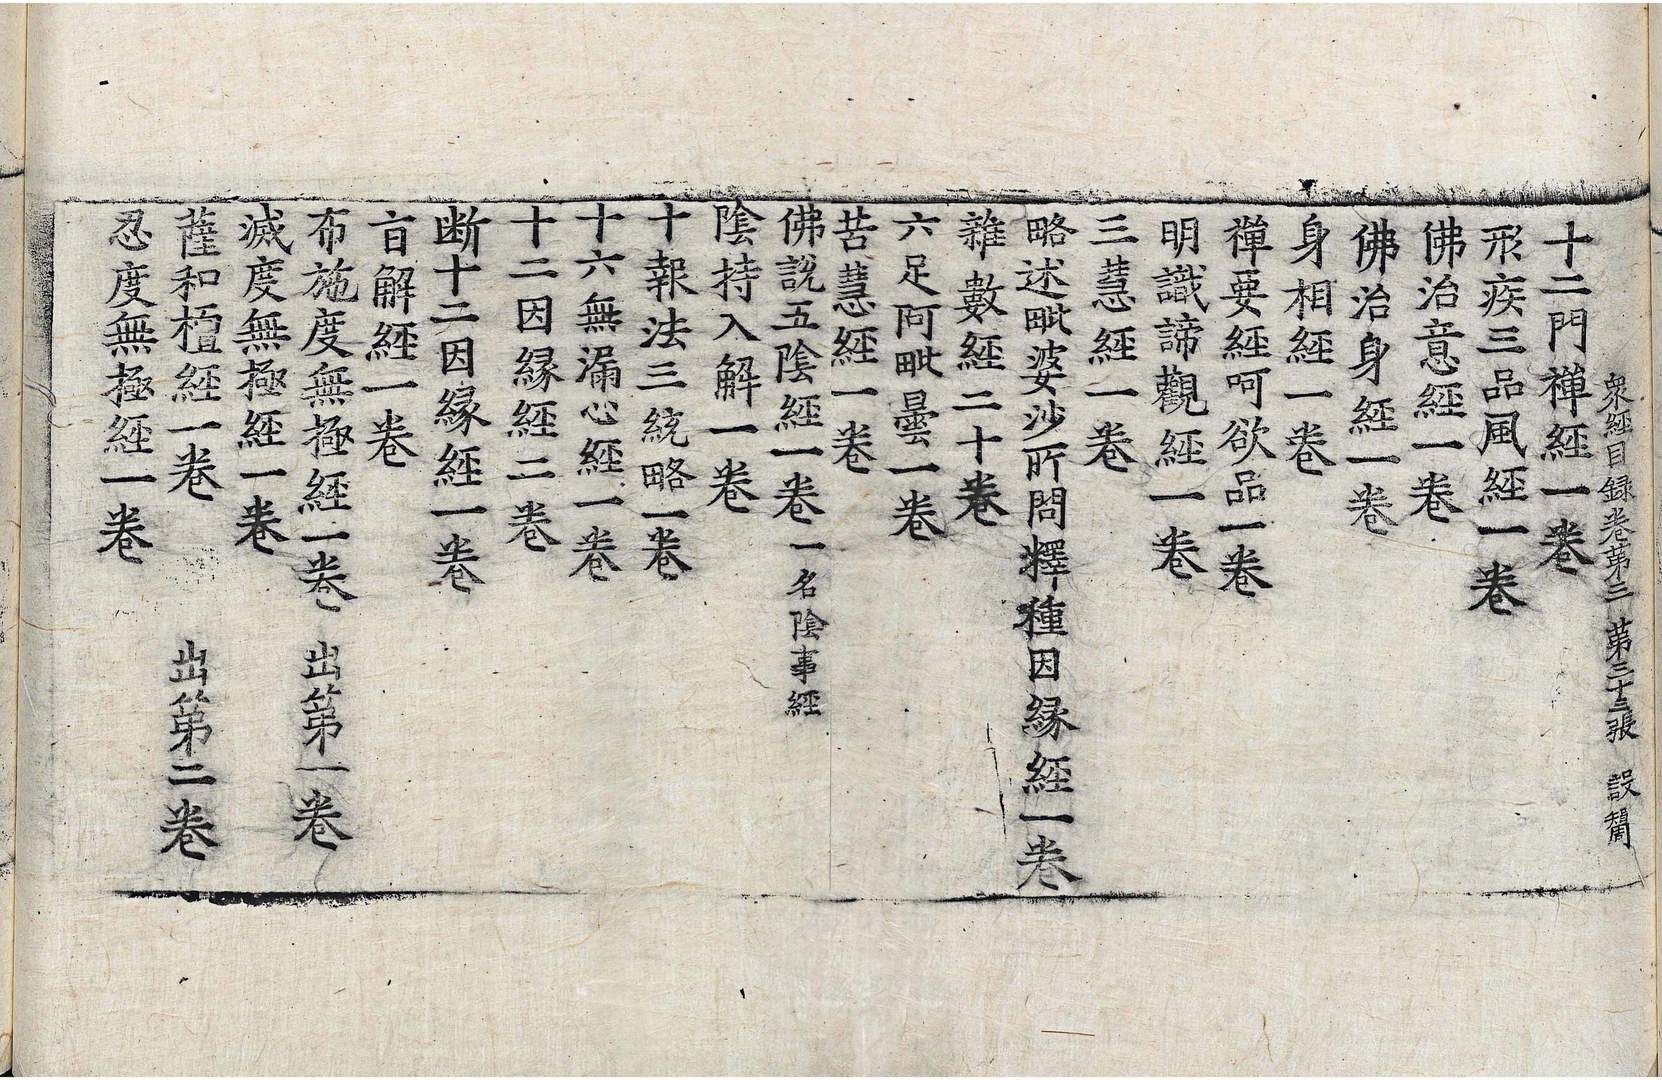 衆經目録卷苐三 苐三十三張 設蕳
十二門禪經一卷
形疾三品風經一卷
佛治意經一卷
佛治身經一卷
身相經一卷
禪要經呵欲品一卷
明識諦觀經一卷
三慧經一卷
略述毗婆沙所問釋種因縁經一卷
雜數經二十卷
六足阿毗曇一卷
苦慧經一卷
佛說五陰經一卷 一名陰事經
陰持入解一卷
十報法三統略一卷
十六無漏心經一卷
十二因縁經二卷
断十二因縁經一卷
盲解經一卷
布施度無極經一卷 出第一卷
滅度無極經一卷
薩和檀經一卷 出第二卷
忍度無極經一卷